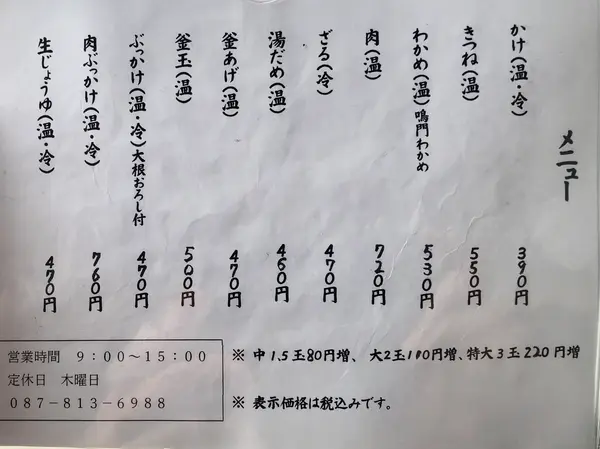 メニュー
かけ(温・冷) 390円
きつね(温) 550円
わかめ(温)鳴門わかめ 530円
肉(温) 720円
ざる(冷) 470円
湯だめ(温) 460円
釜あげ(温) 470円
釜玉(温) 500円
ぶっかけ(温・冷)大根おろし付 470円
肉ぶっかけ(温・冷) 760円
生じょうゆ(温・冷) 470円
※ 中1.5玉80円増、大2玉110円増、特大3玉220円増
※ 表示価格は税込みです。
営業時間 9:00~15:00
定休日 木曜日
087-813-6988